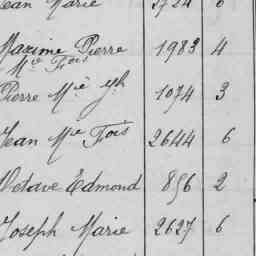 Jean Marie 2724 6
Maxime Pierre 1983 4
Mie Fois
Pierre Mie Jh 1074 3
Jean Mie Fois 2644 6
Octave Edmond 856 2
Joseph Marie 2627 6